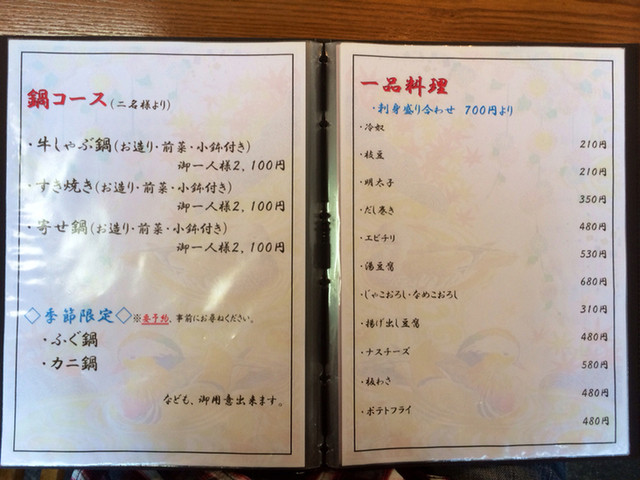 鍋コース(二名様より)
・牛しゃぶ鍋(お造り・前菜・小鉢付き)
御一人様2,100円
・すき焼き(お造り・前菜・小鉢付き)
御一人様2,100円
・寄せ鍋(お造り・前菜・小鉢付き)
御一人様2,100円
◇季節限定◇※要予約、事前にお尋ねください。
・ふぐ鍋
・カニ鍋
なども、御用意出来ます。
一品料理
・刺身盛り合わせ 700円より
・冷奴
210円
・枝豆
210円
・明太子
350円
・だし巻き
480円
・エビチリ
530円
・湯豆腐
680円
・じゃこおろし・なめこおろし
310円
・揚げ出し豆腐
480円
・ナスチーズ
580円
・板わさ
480円
・ポテトフライ
480円